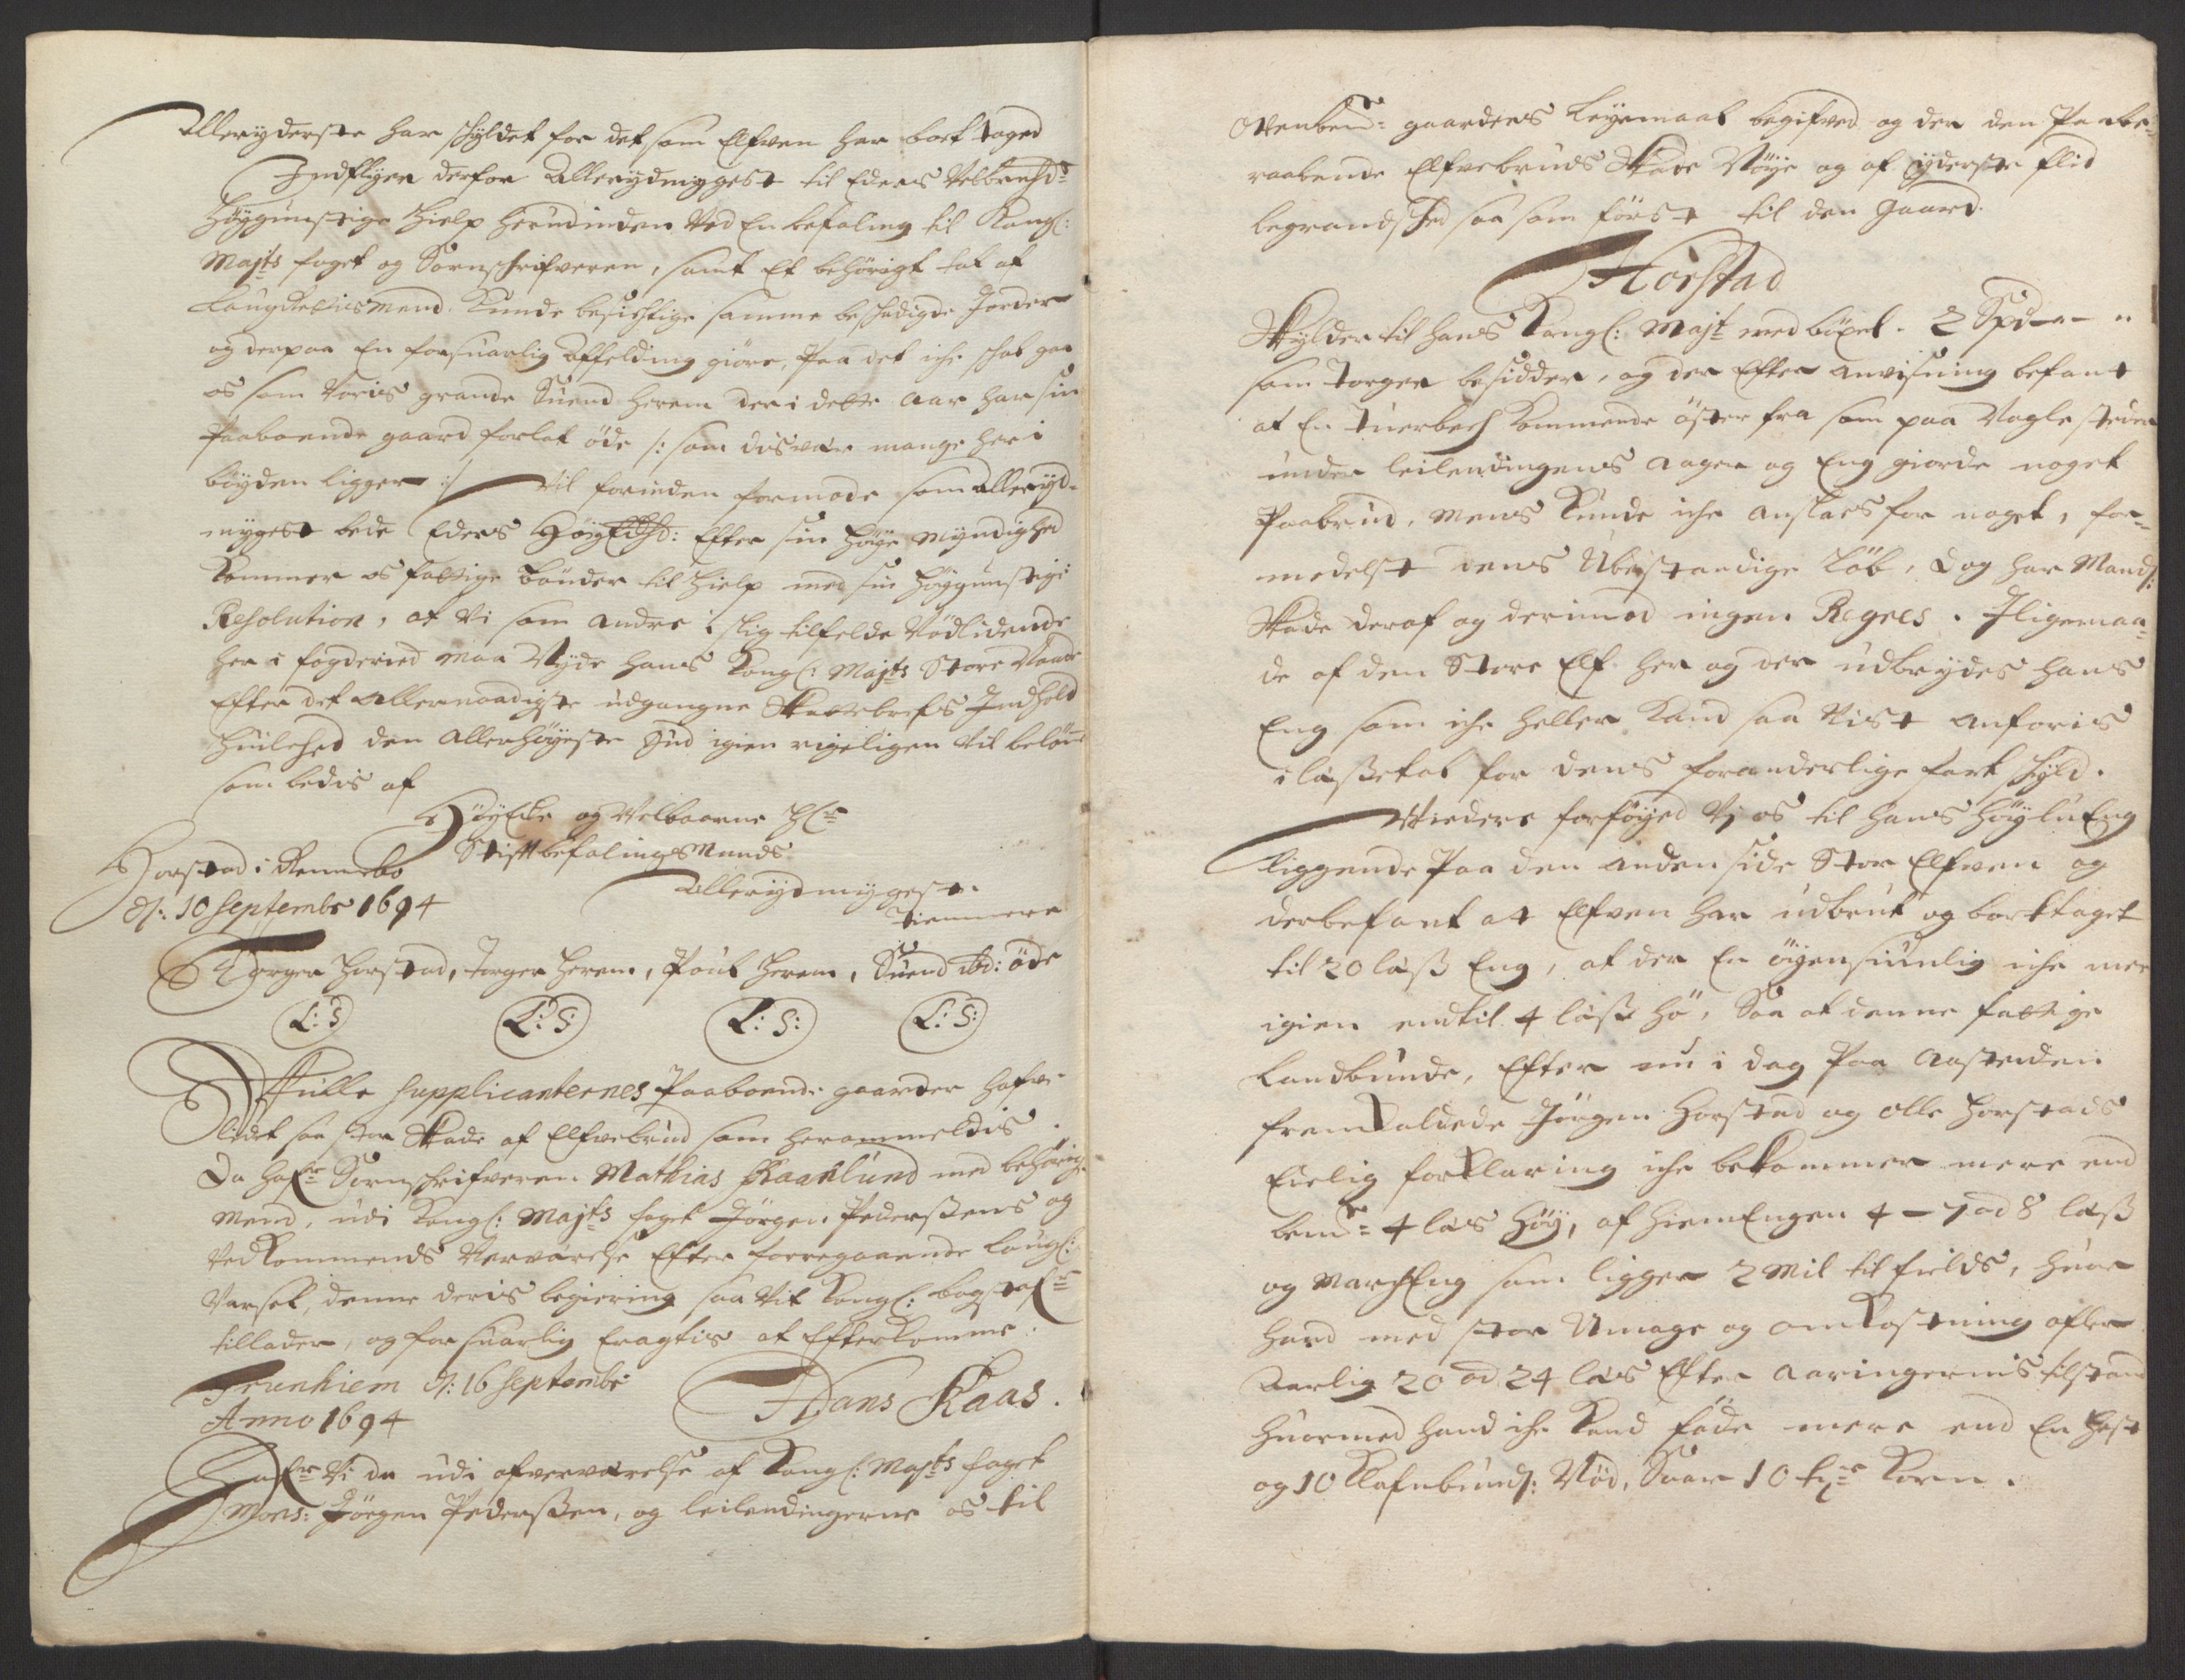 Alleryderste har schyldet for det som Elfven har bort taged
Indflyer derfor Allerydmygest til Eders Velbrhd:
Høÿgunstige Hielp herudinden Ved En befaling til Kongl:
Majts foget og Sornschrifveren, samt Et behörigt tal af
Laugrettismend Kunde besichtige samme beschadigde Jorder
og derpaa En forsuarlig Affelding giöre, Paa det iche schal gaa
os som Voris grande Suend Herem der i dette Aar har sin
Paaboende gaard forlat öde /: som disver mange her i
böyden ligger :/ Vil forinden formode som alleryd-
mygest bede Eders HöyEdhd: Efter sin høye Myndighed
Kommer os fattige Bönder til Hielp med sin höygunstige
Resolution, at Vi som andre i slig tilfelde Nödlidende
her i fogderied maa Nyde hans Kongl: Majts Store Naade
Efter det allernaadigste udgangne Skattebrefs Indhold
Huilched den allerhöyeste Gud igien rigeligen vil belöne
som bedis af
HöyEdle og Velbaarne Hr
Stiftbefalings Mands
Horstad i Rennebo
d: 10 Septembr 1694
Allerydmygest
Tiennere
Torger Horstad, Torger Herem, Poul Herem, Suend ibd: öde
L: S L: S: L: S: L: S:
Huilke supplicanternes Paaboende gaarder hafve
lidet saa stor Skade af Elfvebrud som herommeldis
Da hafr Sornschrifveren Mathias Raaklund med behörige
Mend, udi Kongl: Majts foget Jörgen Pederßens og
Vedkommends Nerværelse Efter forregaaende Laugl:
Varsel, denne deris begiering saa Vit Kongl: bogstafr
tillader, og forsuarlig Eragtis at Efterkomme.
Trunhiem d: 16 Septembr
Anno 1694
Hans Kaas.
Hafr Vi da udi ofververelse af Kongl: Majts foget
Mons: Jörgen Pederßen, og leilendingerne os til
Ofvenbemte: gaarders leyemaal begifved og der den Paabe-
raabende Elfvebruds Skade Nöye og af yderste flid
begrandsched saa som först til den gaard
Horstad
Skylder til hans Kongl: Majt med böxel. 2 Spd - - "
som Torger besidder, og der Efter anvisning befant
at En Tuerbech kommende öster fra som paa Nogle steder
under leilendingens ager og Eng giorde noget
Paabrud, Mens Kunde iche anslaes for noget, for-
medelst dens Ubestandige Löb, dog har Mand:
Skade deraf og derimod ingen Regres. Iligemaa-
de af den Store Elf her og der udbrydes hans
Eng som iche heller Kand saa Vist anföris
i læßetal for dens foranderlige fart schyld.
Viedere forföyed Vj os til hans HöyluEng
liggende Paa den anden side Stor Elfven og
derbefant at Elfven har udbrut og borttaget
til 20 læß Eng, at der En öyensiunlig iche mer
igien endtil 4 læß Hö, Saa at denne fattige
Landbunde, Efter nu i dag Paa aasteden
fremkaldede Jörgen Horstad og Olle Horstads
Eielig forklaring iche bekommer mere end
bemte: 4 læs Höy, af HiemEngen 4 - 7 ad 8 læß
og MarchEng som ligger 2 Mil til fields, huor
hand med stor Umage og omkostning afler
Aarlig 20 ad 24 læs Efter aaringernis tilstand
Huormed hand iche Kand föde mere end En hest
og 10 Klafnbunds: Nöd, Saar 10 tr Korn.